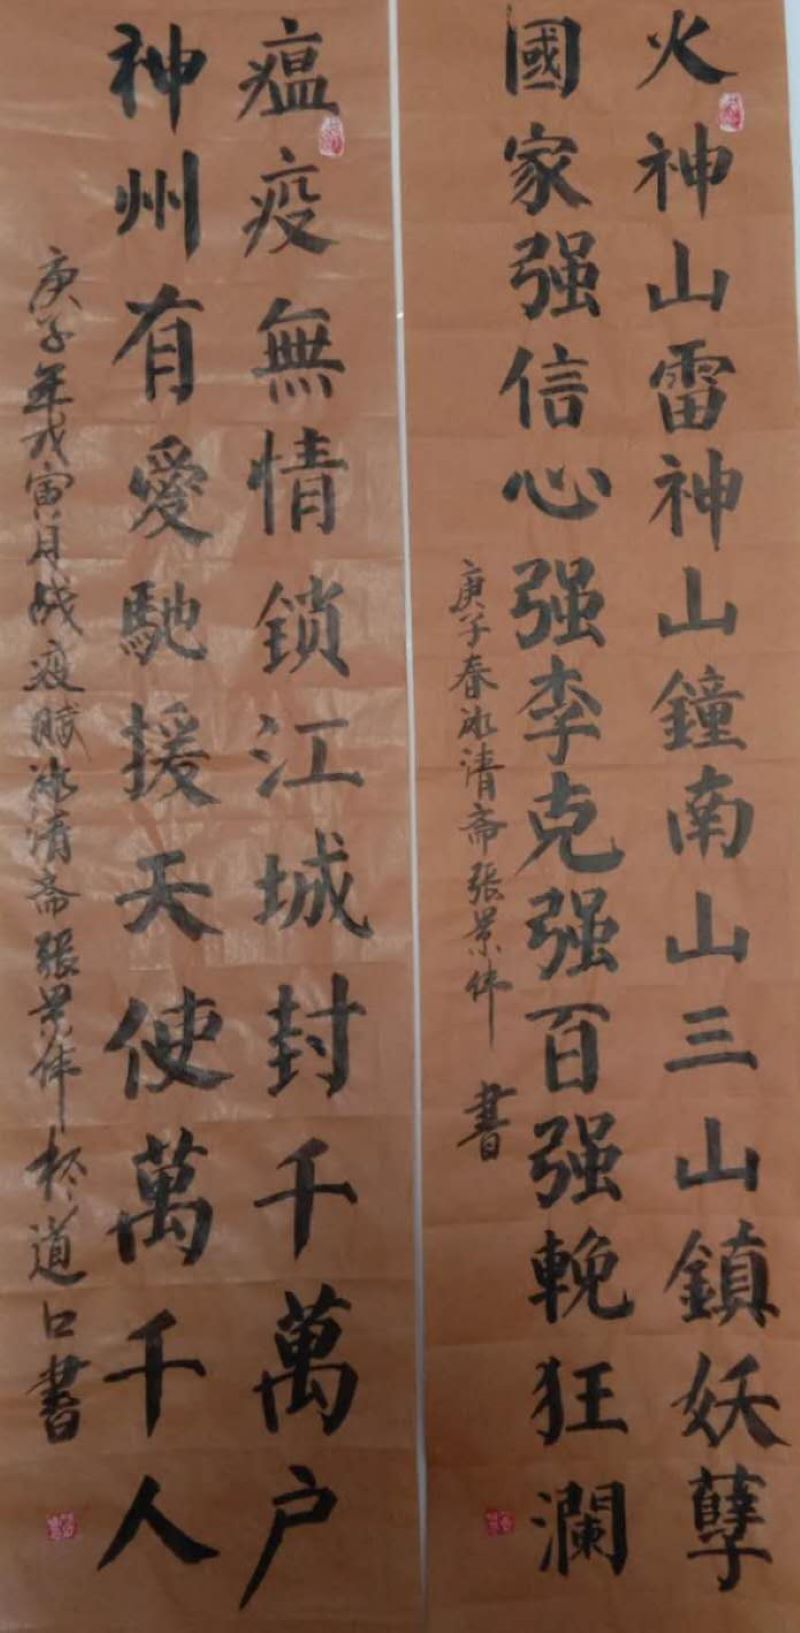 火神山雷神山鐘南山三山鎮妖孽
國家强信心强李克强百强輓狂瀾
庚子春冰清斋張景伟書
瘟疫無情鎖江城封千萬户
神州有愛馳援天使萬千人
庚子年戊寅月战疫賦冰清斋張景伟於道口書